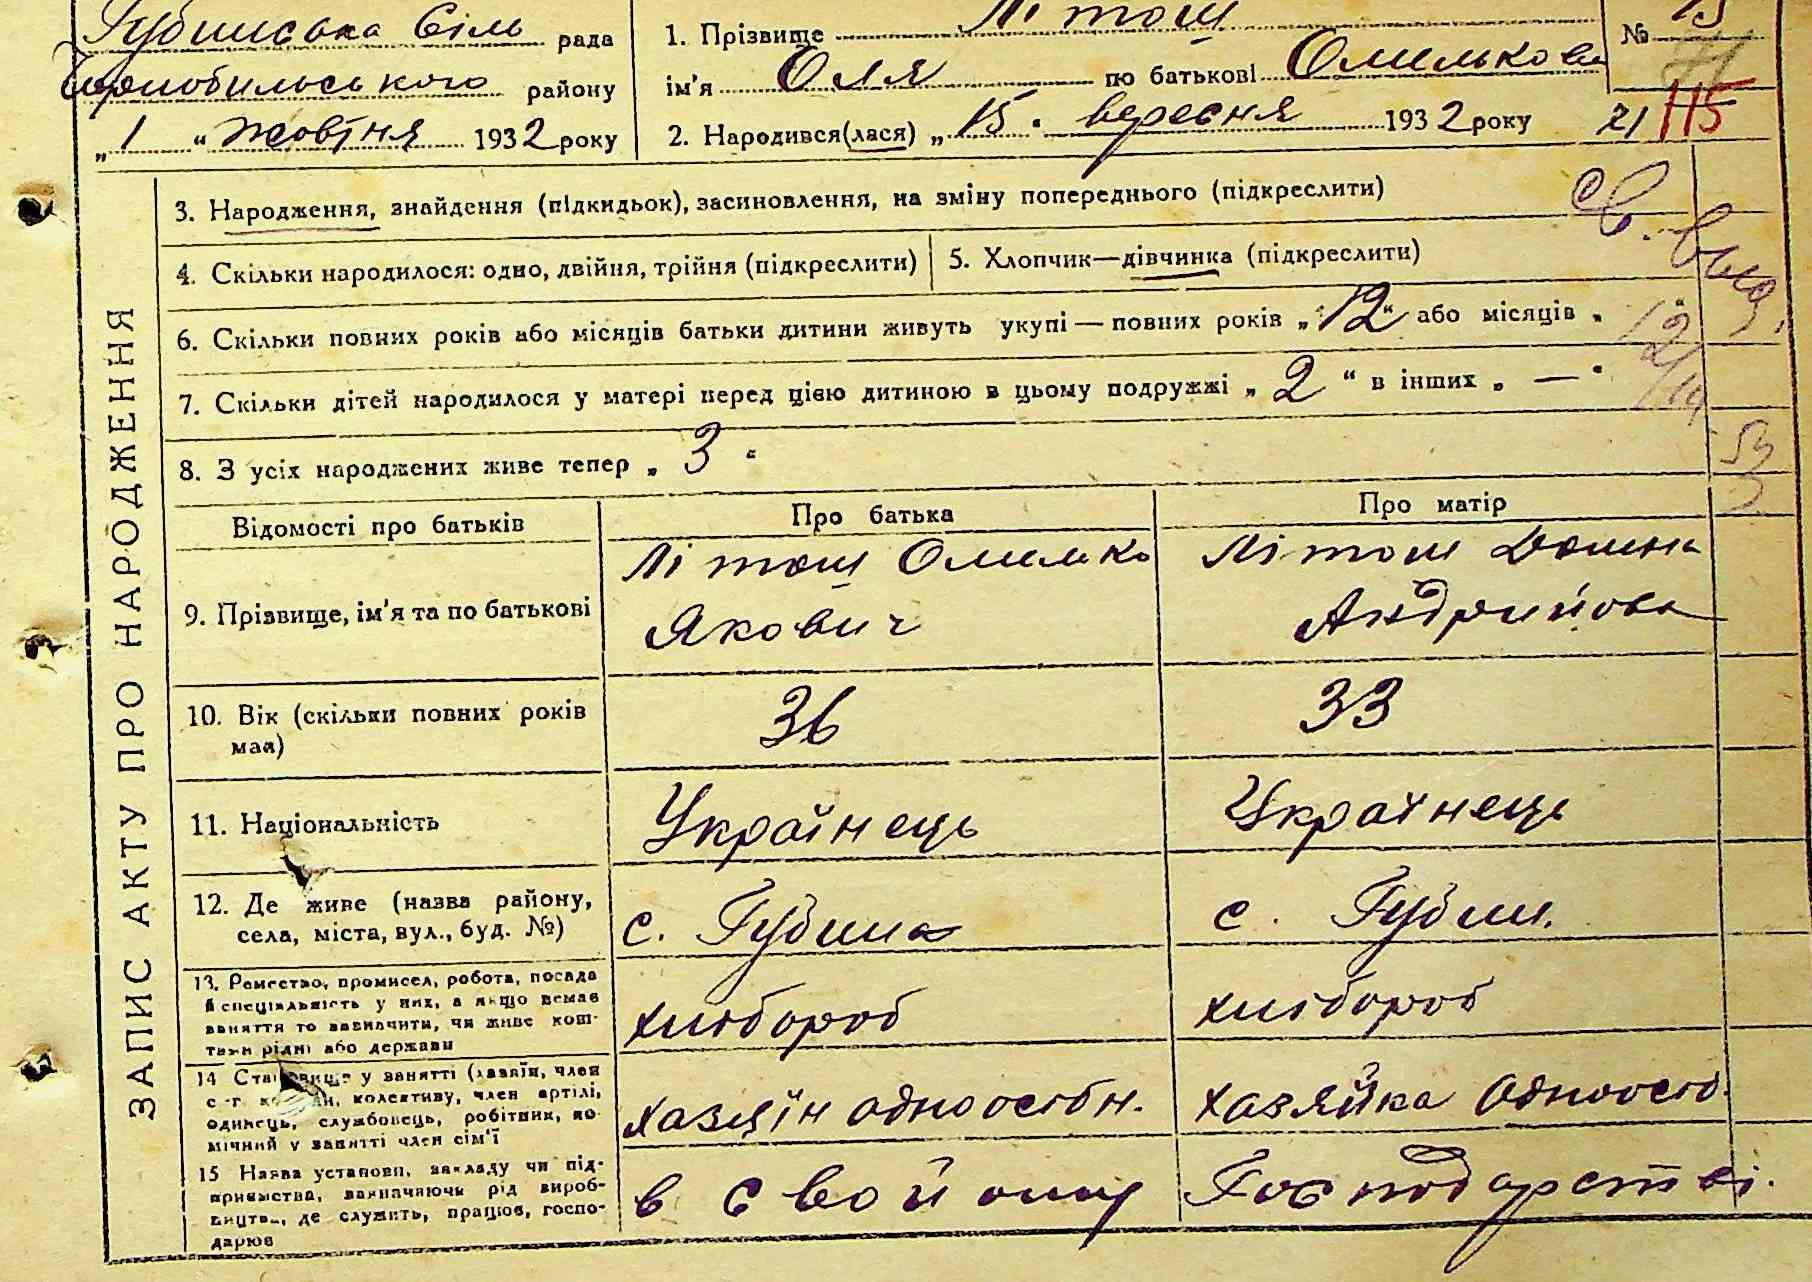 Губинська Сіль рада
Чорнобильського району
„1“ жовтня 1932 року
1. Прізвище Літош
ім'я Оля по батькові Омельков
2. Народився(лася) „15“ вересня 1932 року
№ 15
21 115
3. Народження, знайдення (підкидьок), засиновлення, на зміну попереднього (підкреслити)
4. Скільки народилося: одно, двійня, трійня (підкреслити)
5. Хлопчик—дівчинка (підкреслити)
св. выд.
6. Скільки повних років або місяців батьки дитини живуть укупі — повних років „12“ або місяців „ “
7. Скільки дітей народилося у матері перед цією дитиною в цьому подружжі „2“ в інших „—“
8. З усіх народжених живе тепер „3“
ЗАПИС АКТУ ПРО НАРОДЖЕННЯ
Відомості про батьків
Про батька
Про матір
9. Прізвище, ім'я та по батькові
Літош Омелько
Якович
Літош
Андрийовна
10. Вік (скільки повних років
має)
36
33
11. Національність
Українець
Українець
12. Де живе (назва району,
села, міста, вул., буд. №)
с. Губина
с. Губин.
13. Ремество, промисел, робота, посада
й спеціяльність у них, а якщо немає
заняття то зазначити, чи живе кош-
тами рідні або держави
хлібороб
хлібороб
14 Становище у занятті (хазяїн, член
с.-г. колективу, член артілі,
одинець, службовець, робітник, по-
мічний у занятті член сім'ї
хазяїн одноосібн.
хазяйка одноосіб.
15 Назва установи, закладу чи під-
приємства, зазначаючи рід вироб-
ництва, де служить, працює, госпо-
дарює
в свойому Господарстві.